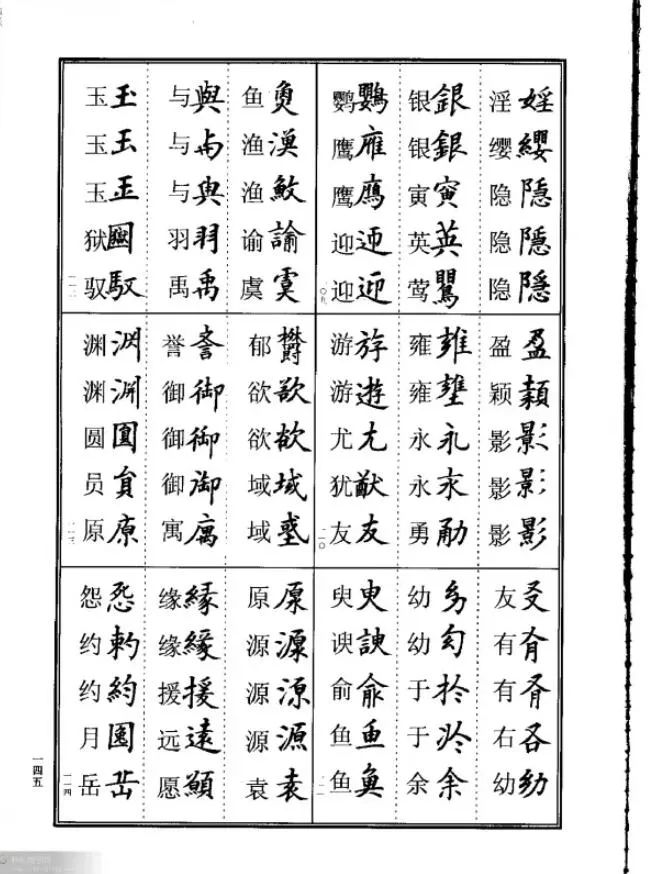 淫婬 缨纓 隐隱 隐隱 隐隱
银銀 银銀 寅寅 英英 莺鸎
鹦鸚 鹰 鹰鷹 迎迎 迎迎
盈盈 颖頴 影影 影影 影影
雍雍 雍 永永 永永 勇
游斿 游遊 尤尤 犹猷 友友
友 有 有 右 幼幼
幼 幼 于於 于 余余
臾臾 谀諛 俞俞 鱼魚 鱼魚
鱼魚 渔漁 渔 谕諭 虞虞
与與 与与 与與 羽羽 禹禹
玉玉 玉玉 玉玉 狱 驭馭
一一二
郁欝 欲欲 欲欲 域域 域
誉 御御 御御 御御 寓
渊 渊 圆圓 员員 原原
一一三
原原 源源 源源 源源 袁袁
缘緣 缘緣 援援 远遠 愿願
怨 约 约約 月 岳
一一四
一四五